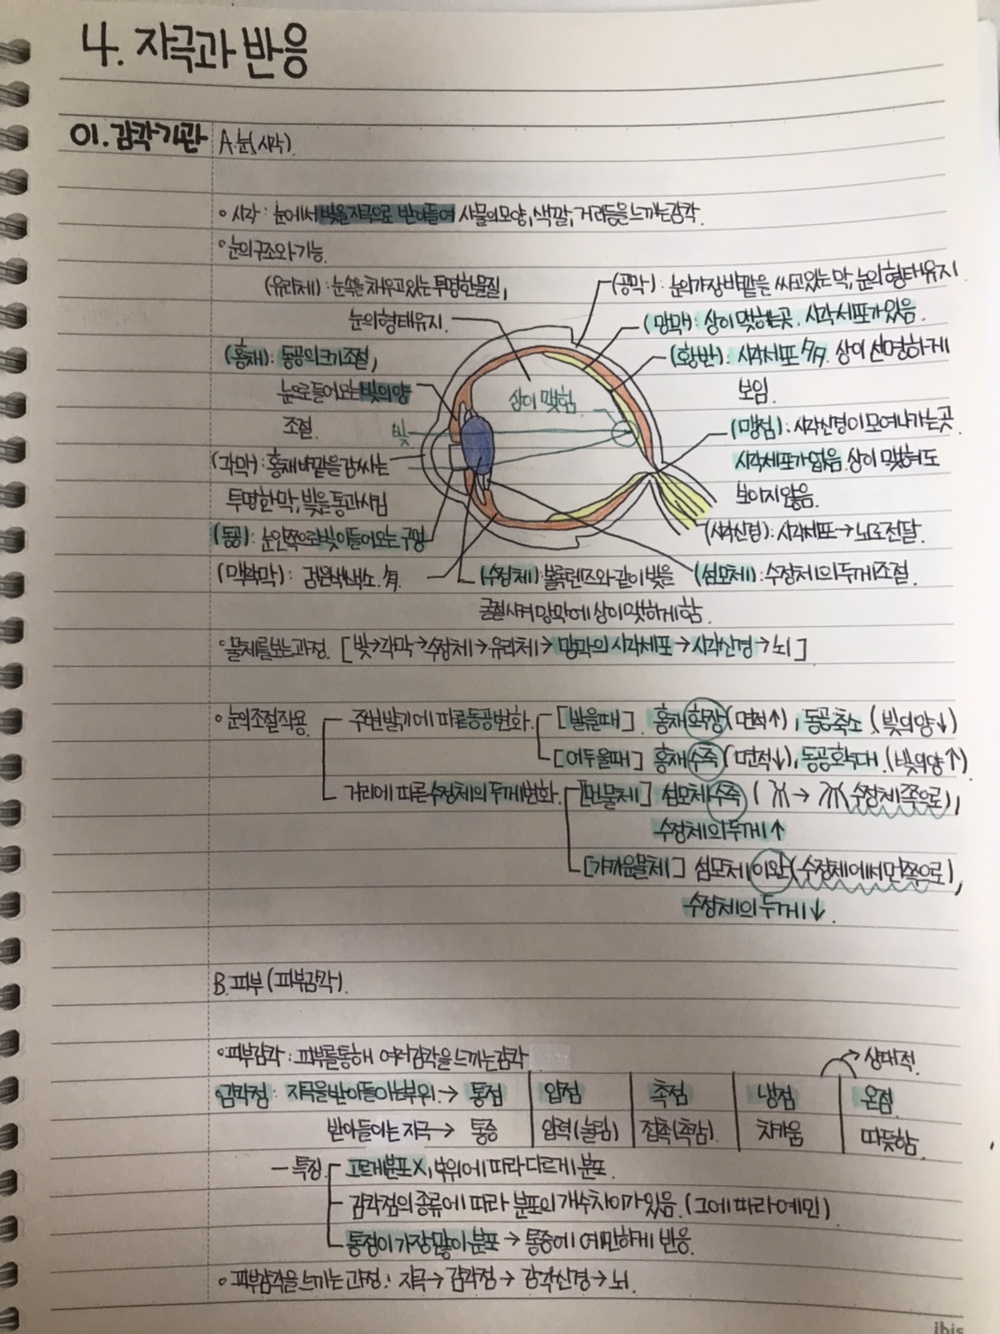 4. 자극과 반응
01. 감각기관
A.눈(시각)
◦ 시각 : 눈에서 빛을 자극으로 받아들여 사물의 모양, 색깔, 거리등을 느끼는 감각.
◦ 눈의 구조와 기능
(유리체) : 눈속을 채우고 있는 투명한 물질,
눈의 형태유지.
(홍채) : 동공의 크기조절,
눈으로 들어오는 빛의 양
조절.
(각막) : 홍채 바깥을 감싸는
투명한 막, 빛을 통과시킴
(동공) : 눈 안쪽으로 빛이 들어오는 구멍
(맥락막) : 검은색 색소 有.
빛
상이 맺힘
(공막) : 눈의 가장 바깥을 싸고 있는 막, 눈의 형태유지
(망막) : 상이 맺히는 곳. 시각세포가 있음.
(황반) : 시각세포 多有. 상이 선명하게
보임.
(맹점) : 시각신경이 모여 나가는 곳.
시각세포가 없음. 상이 맺혀도
보이지 않음.
(시각신경) : 시각세포 → 뇌로 전달.
(수정체) : 볼록렌즈와 같이 빛을
굴절시켜 망막에 상이 맺히게 함.
(섬모체) : 수정체의 두께조절.
◦물체를 보는 과정. [빛→각막→수정체→유리체→망막의 시각세포→시각신경→뇌]
◦ 눈의 조절작용
주변 밝기에 따른 동공변화.
[밝을때] 홍채 확장 (면적↑), 동공축소 (빛의 양↓)
[어두울때] 홍채 수축 (면적↓), 동공확대. (빛의 양↑)
거리에 따른 수정체의 두께변화.
[먼물체] 섬모체 수축 ( → 수정체쪽으로),
수정체의 두께↑
[가까운물체] 섬모체 이완 (수정체에서 먼쪽으로),
수정체의 두께↓.
B.피부 (피부감각).
◦피부감각 : 피부를 통해 여러감각을 느끼는 감각
→ 상대적.
감각점 : 자극을 받아들이는 부위. → 통점 압점 촉점 냉점 온점
받아들이는 자극 → 통증 압력(눌림) 접촉(촉감). 차가움 따뜻함.
— 특징
고르게 분포 X, 부위에 따라 다르게 분포.
감각점의 종류에 따라 분포의 개수차이가 있음. (그에 따라 예민)
통점이 가장 많이 분포 → 통증에 예민하게 반응.
◦ 피부감각을 느끼는 과정 : 자극 → 감각점 → 감각신경 → 뇌.
ibis